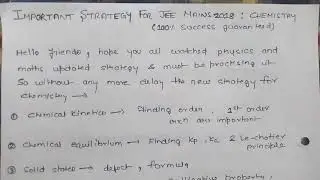 IMPORTANT STRATEGY FOR JEE MAINS 2018 : CHEMISTRY
(100% success guaranteed)
Hello friends, hope you all watched physics and
maths updated strategy & must be practising it
So without any more delay the new strategy for
chemistry →
① Chemical Kinetics → finding order, 1st order
rxn are important
② Chemical equilibrium → Finding Kp, Kc & Le-chatlier
principle
③ Solid states → defect, formula
property,